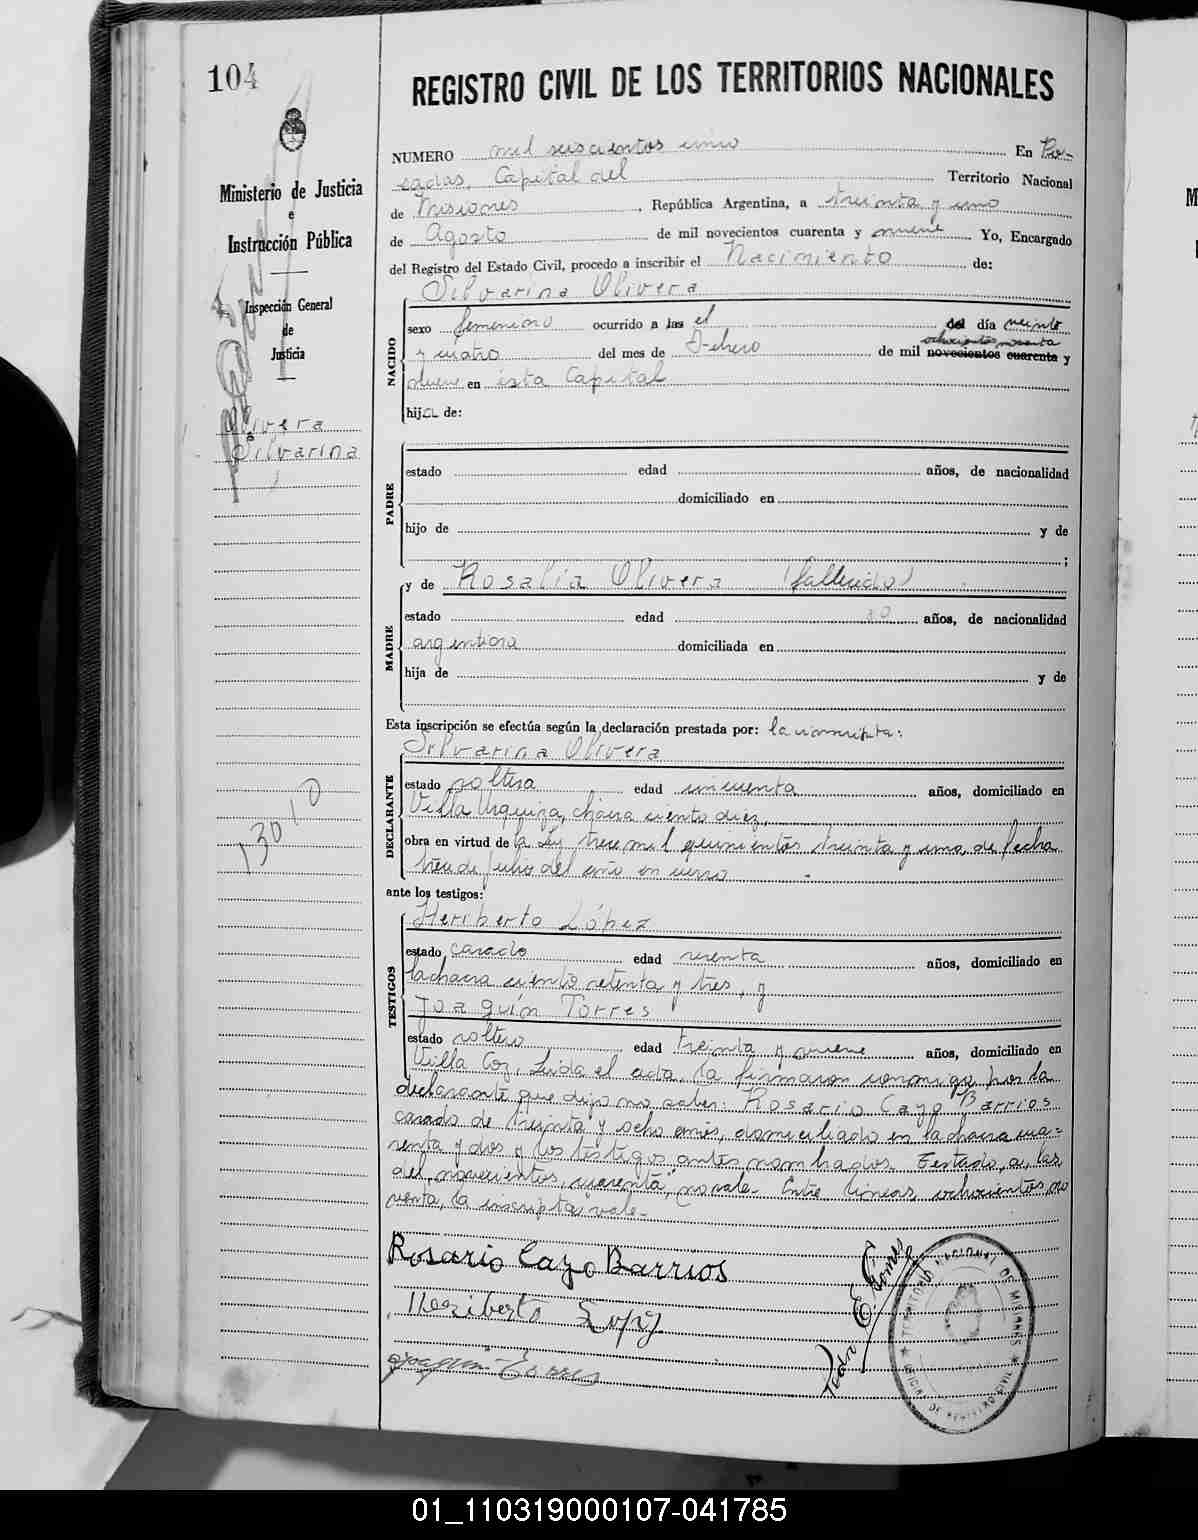 104
REGISTRO CIVIL DE LOS TERRITORIOS NACIONALES
Ministerio de Justicia
e
Instrucción Pública
Inspección General
de
Justicia
Olivera
Silvarina
13010
NUMERO mil seiscientos uno En Po-
sadas, Capital del Territorio Nacional
de Misiones, República Argentina, a treinta y uno
de Agosto de mil novecientos cuarenta y nueve Yo, Encargado
del Registro del Estado Civil, procedo a inscribir el Nacimiento de:
Silvarina Olivera
NACIDO
sexo femenino ocurrido a las el del día veinte
ochocientos noventa
y cuatro del mes de Febrero de mil novecientos cuarenta y
nueve en ésta Capital
hija de:
PADRE
estado edad años, de nacionalidad
domiciliado en
hijo de y de
;
y de Rosalia Olivera (fallecida)
MADRE
estado edad años, de nacionalidad
argentina domiciliada en
hija de y de
Esta inscripción se efectúa según la declaración prestada por: la inscripta:
Silvarina Olivera
DECLARANTE
estado soltera edad cincuenta años, domiciliado en
Villa Urquiza, chacra ciento diez,
obra en virtud de la Ley trece mil quinientos treinta y uno, de fecha
trece de Julio del año en curso
ante los testigos:
Heriberto López
TESTIGOS
estado casado edad años, domiciliado en
la chacra ciento setenta y tres, y
Joaquín Torres
estado soltero edad treinta y nueve años, domiciliado en
Villa Coz. Leida el acta, la firmaron conmigo por la
declarante que dijo no saber: Rosario Cayo Barrios
casado de treinta y ocho años, domiciliado en la chacra cua=
renta y dos y los testigos antes nombrados. Testado, a, las,
del, novecientos, cuarenta, no vale. Entre lineas, ochocientos no
venta, la inscripta vale.-
Rosario Cayo Barrios
Heriberto Lopez
Joaquin Torres
Pedro E. Gomez
TERRITORIO NACIONAL DE MISIONES
OFICINA DE REGISTRO CIVIL
01_110319000107-041785